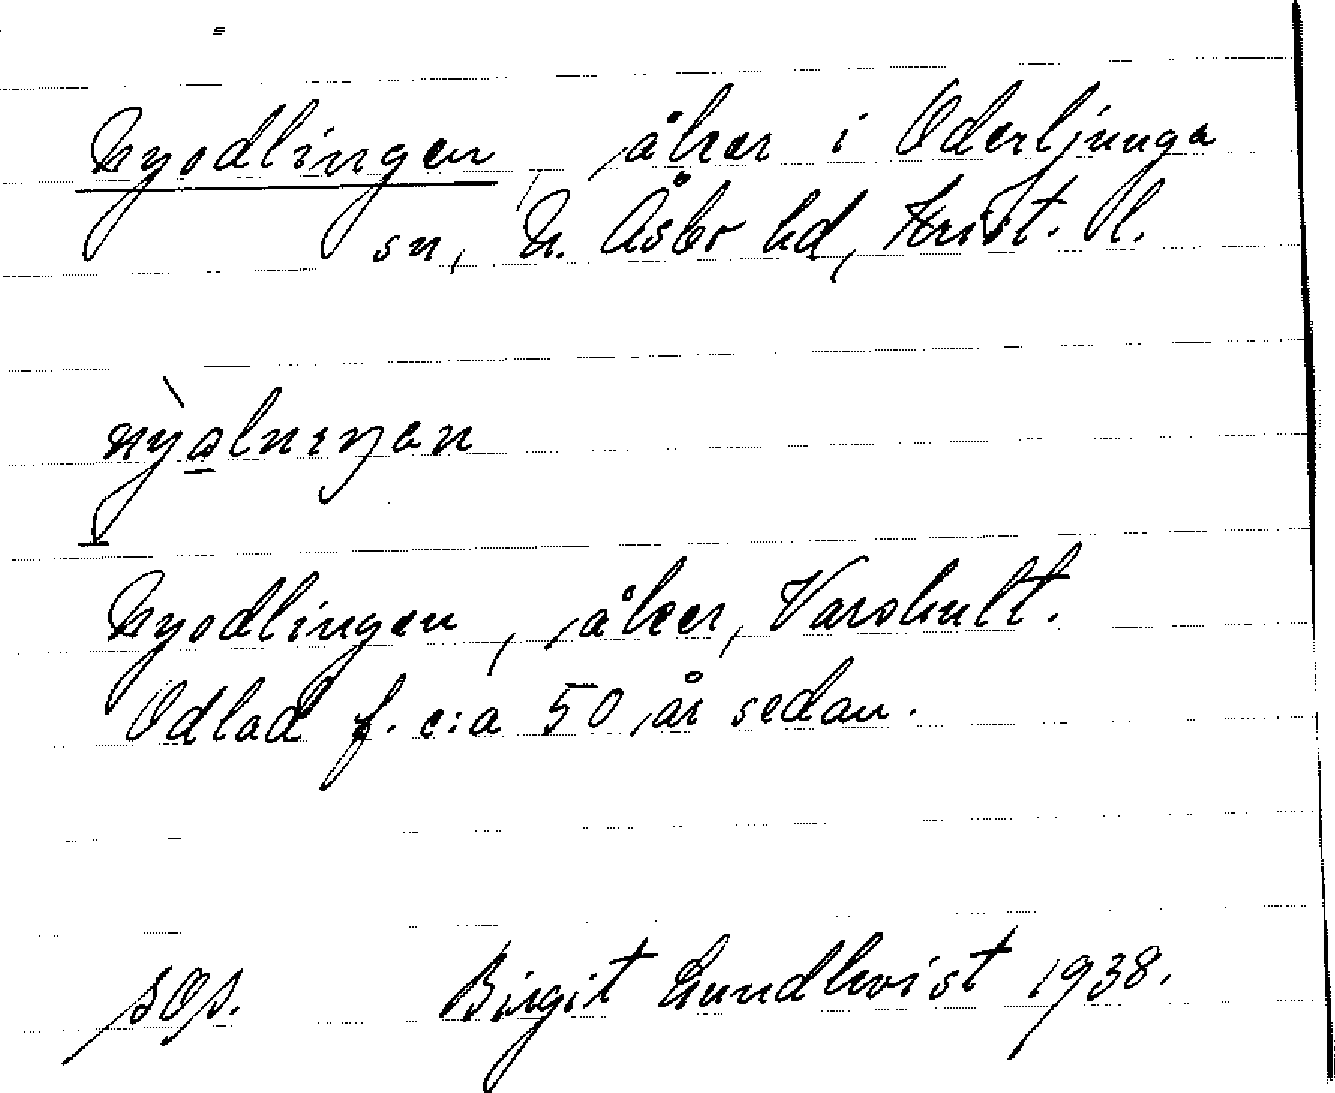 Nyodlingen, åker i Oderljunga
sn, N. Åsbo hd, Krist. l.
Nyodlingen, åker, Varshult.
Odlad f. c:a 50 år sedan.
Birgit Lundkvist 1938.